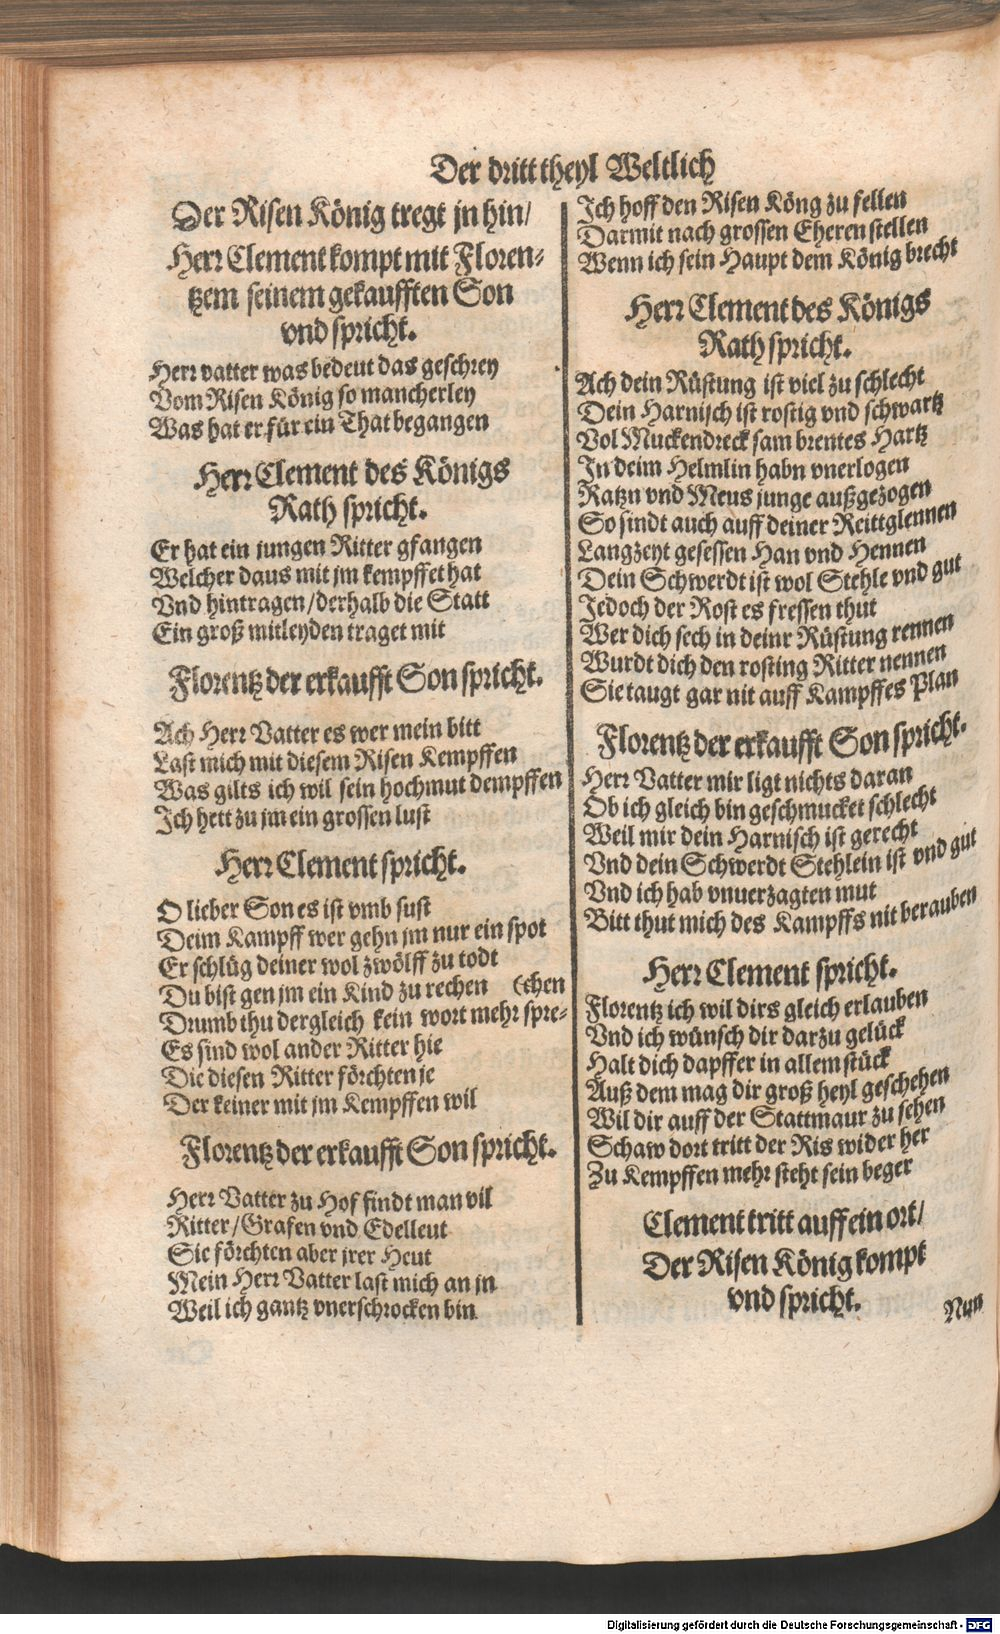 Der dritt theyl Weltlich
Der Risen König tregt jn hin/
Herr Clement kompt mit Floren-
tzem seinem gekaufften Son
vnd spricht.
Herr vatter was bedeut das geschrey
Vom Risen König so mancherley
Was hat er für ein That begangen
Herr Clement des Königs
Rath spricht.
Er hat ein jungen Ritter gfangen
Welcher daus mit jm kempffet hat
Vnd hintragen/derhalb die Statt
Ein groß mitleyden traget mit
Florentz der erkaufft Son spricht.
Ach Herr Vatter es wer mein bitt
Last mich mit diesem Risen Kempffen
Was gilts ich wil sein hochmut dempffen
Ich hett zu jm ein grossen lust
Herr Clement spricht.
O lieber Son es ist vmb sust
Deim Kampff wer gehn jm nur ein spot
Er schlüg deiner wol zwölff zu todt
Du bist gen jm ein Kind zu rechen (chen
Drumb thu dergleich kein wort mehr spre-
Es sind wol ander Ritter hie
Die diesen Ritter förchten je
Der keiner mit jm Kempffen wil
Florentz der erkaufft Son spricht.
Herr Vatter zu Hof findt man vil
Ritter/Grafen vnd Edelleut
Sie förchten aber jrer Heut
Mein Herr Vatter last mich an jn
Weil ich gantz vnerschrocken bin
Ich hoff den Risen Köng zu fellen
Darmit nach grossen Eheren stellen
Wenn ich sein Haupt dem König brecht
Herr Clement des Königs
Rath spricht.
Ach dein Rüstung ist viel zu schlecht
Dein Harnisch ist rostig vnd schwartz
Vol Muckendreck sam brentes Hartz
In deim Helmlin habn vnerlogen
Ratzn vnd Meus junge außgezogen
So sindt auch auff deiner Reittglennen
Langzeyt gesessen Han vnd Hennen
Dein Schwerdt ist wol Stehle vnd gut
Jedoch der Rost es fressen thut
Wer dich sech in deinr Rüstung rennen
Wurdt dich den rosting Ritter nennen
Sie taugt gar nit auff Kampffes Plan
Florentz der erkaufft Son spricht.
Herr Vatter mir ligt nichts daran
Ob ich gleich bin geschmucket schlecht
Weil mir dein Harnisch ist gerecht
Vnd dein Schwerdt Stehlein ist vnd gut
Vnd ich hab vnuerzagten mut
Bitt thut mich des Kampffs nit berauben
Herr Clement spricht.
Florentz ich wil dirs gleich erlauben
Vnd ich wünsch dir darzu gelück
Halt dich dapffer in allem stück
Auß dem mag dir groß heyl geschehen
Wil dir auff der Stattmaur zu sehen
Schaw dort tritt der Ris wider her
Zu Kempffen mehr steht sein beger
Clement tritt auff ein ort/
Der Risen König kompt
vnd spricht.
Nun
Digitalisierung gefördert durch die Deutsche Forschungsgemeinschaft - DFG